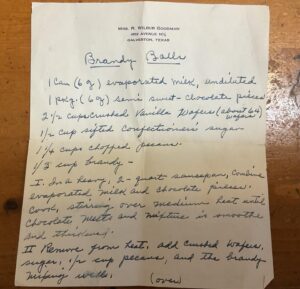 MRS. R. WILBUR GOODMAN
GALVESTON, TEXAS
Brandy Balls
1 Can (6 g) evaporated milk, undiluted
1 pkg. (6 g) semi-sweet-chocolate pieces
2 1/2 cups crushed Vanilla Wafers (about 64 wafers)
1/2 cup sifted Confectioners sugar
1 1/4 cups chopped pecans
1/3 cup brandy -
I. In a heavy, 2-quart saucepan, combine
evaporated milk and chocolate pieces.
Cook, stirring over medium heat until
Chocolate melts and mixture is smooth
and thickened.
II Remove from heat, add crushed wafers,
sugar, 1/2 cup pecans, and the brandy
mixing well.
(over)